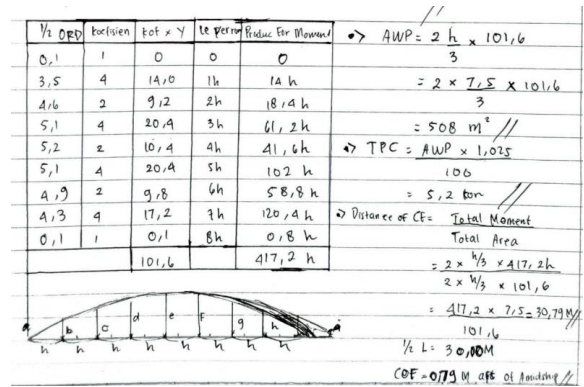 ½ ORD koefisien kof x Y le perron Produc For Moment
0,1 1 0 0 0
3,5 4 14,0 1h 14 h
4,6 2 9,2 2h 18,4 h
5,1 4 20,4 3h 61,2h
5,2 2 10,4 4h 41,6h
5,1 4 20,4 5h 102 h
4,9 2 9,8 6h 58,8 h
4,3 4 17,2 7h 120,4 h
0,1 1 0,1 8h 0,8 h
101,6 417,2 h
b c d e F g h
h h h h h h h
•> AWP = 2 h/3 x 101,6
= 2 x 7,5/3 x 101,6
= 508 m² //
•> TPC = AWP x 1,025 / 100
= 5,2 ton //
•> Distance of CF = Total Moment / Total Area
= 2 x h/3 x 417,2h / 2 x h/3 x 101,6
= 417,2 x 7,5 / 101,6 = 30,79 M //
½ L = 30,00M
COF = 0,79 M aft of Amidship //